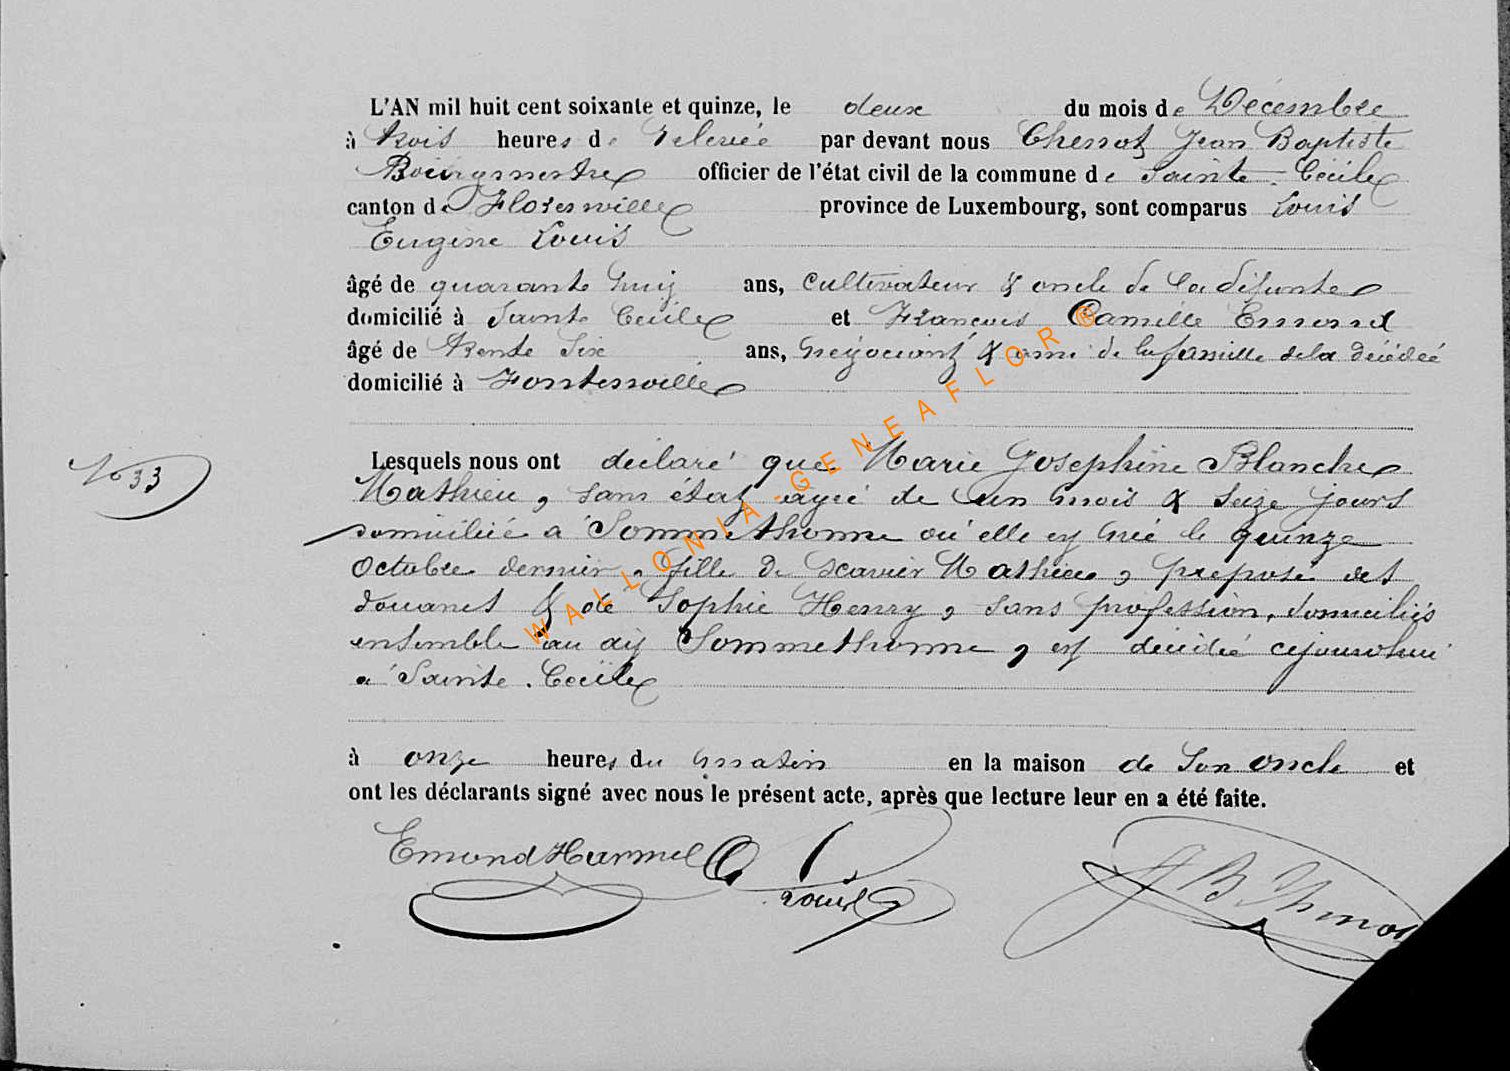 L'AN mil huit cent soixante et quinze, le deux du mois de Décembre
à trois heures de relevée par devant nous Jean Baptiste
Bourgmestre officier de l'état civil de la commune de Sainte-Cécile
canton de Florenville province de Luxembourg, sont comparus Louis
Eugène Louis
âgé de quarante huit ans, cultivateur & oncle de la défunte
domicilié à Sainte Cécile et François Camille Emond
âgé de trente six ans, négociant & ami de la famille de la décédée
domicilié à Fontenoille
N° 33
Lesquels nous ont déclaré que Marie Joséphine Blanche
Mathieu, sans état agée de un mois & seize jours
domiciliée à Sommethonne où elle est née le quinze
Octobre dernier, fille de Mathieu, préposé des
douanes & de Sophie Henry, sans profession, domiciliés
ensemble au dit Sommethonne, est décédée cejourd'hui
à Sainte-Cécile
à onze heures du matin en la maison de son oncle et
ont les déclarants signé avec nous le présent acte, après que lecture leur en a été faite.
Emond Harmel Louis J B
WALLONIA-GENEAFLOR ®